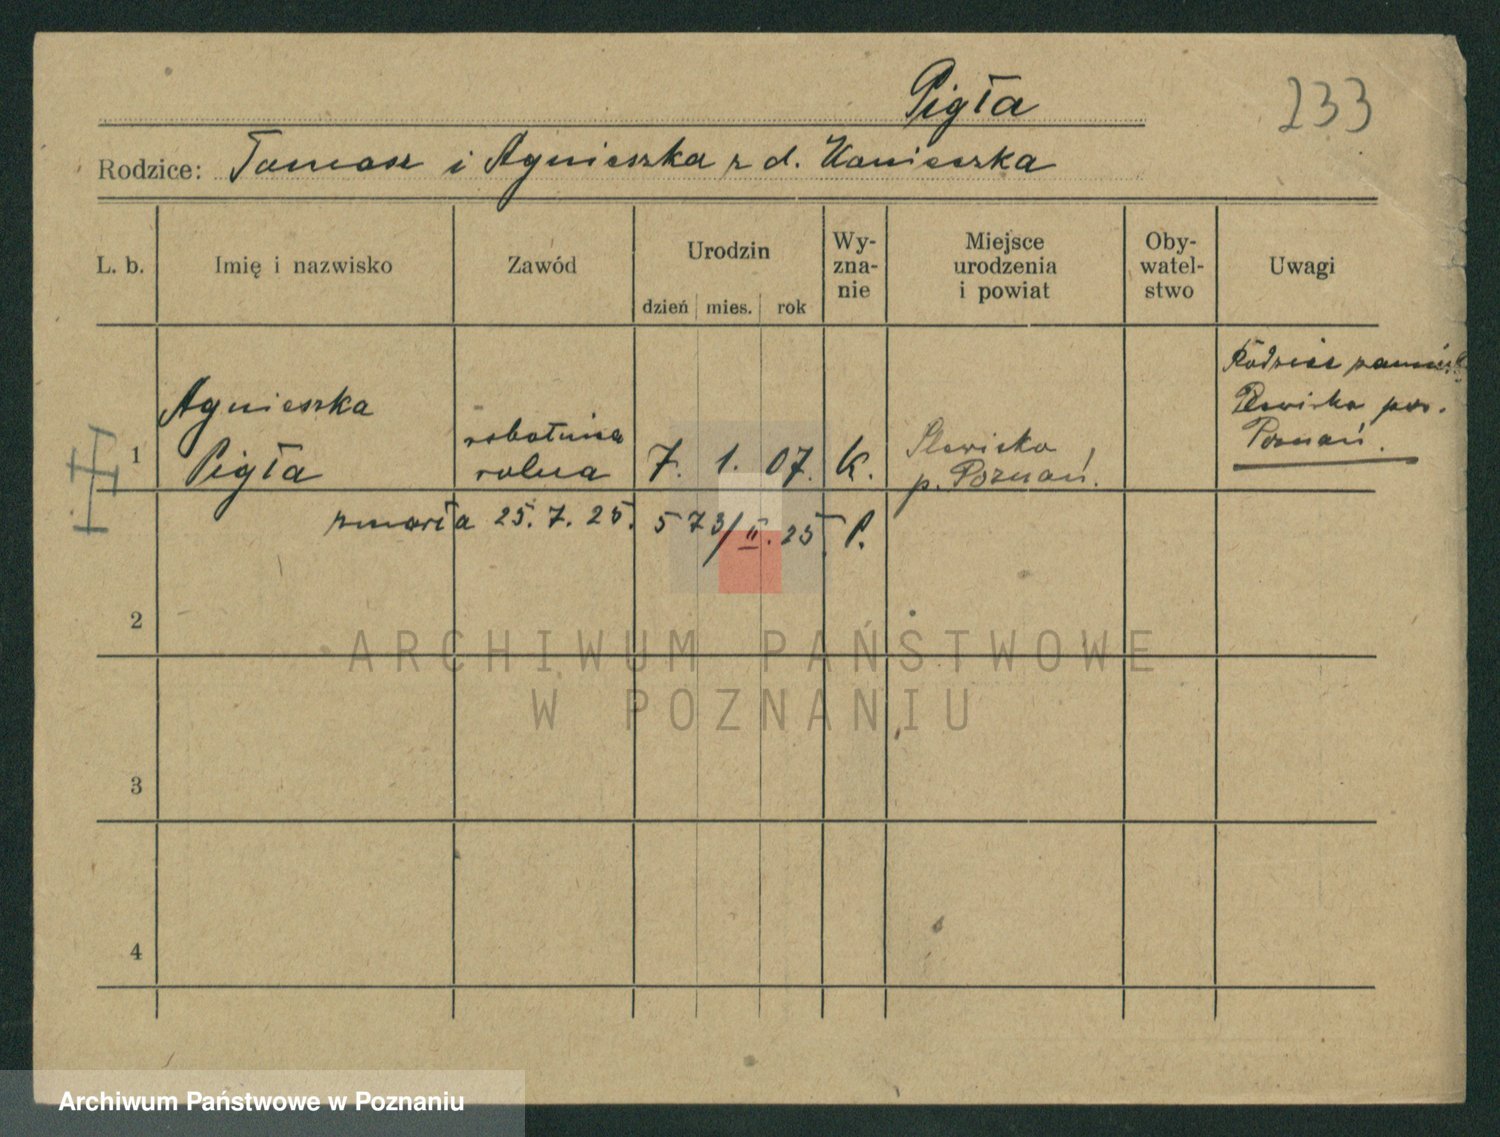 Pigła
233
Rodzice: Tomasz i Agnieszka z d. Konieczka
L. b. Imię i nazwisko Zawód Urodzin Wy-zna-nie Miejsce urodzenia i powiat Oby-watel-stwo Uwagi
dzień mies. rok
1 Agnieszka Pigła robotnica rolna 7. 1. 07. K. Plewiska p. Poznań. Rodzice Plewiska pow. Poznań.
zmarła 25. 7. 25. 573/II. 25. P.
2
ARCHIWUM PAŃSTWOWE
W POZNANIU
3
4
Archiwum Państwowe w Poznaniu